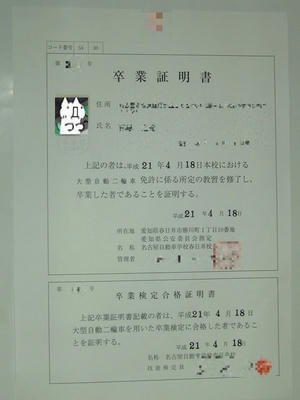 コード番号 54 30
第 号
卒業証明書
住所
氏名
上記の者は、平成21年4月18日本校における
大型自動二輪車 免許に係る所定の教習を修了し、
卒業した者であることを証明する。
平成21年4月18日
所在地 愛知県春日井市勝川町1丁目10番地
愛知県公安委員会指定
名称 名古屋自動車学校春日井校
管理者
第 号
卒業検定合格証明書
上記卒業証明書記載の者は、平成21年4月18日
大型自動二輪車を用いた卒業検定に合格した者であるこ
とを証明する。
平成21年4月18日
名称 名古屋自動車学校春日井校
技能検定員